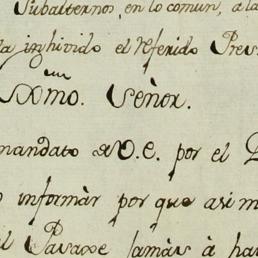 Subalternos, en lo comun, a la
la inhivido el referido Pres
Exmo. Señor.
mandato de V. E. por el
informàr por que asi m
el Parage Jamàs à ha